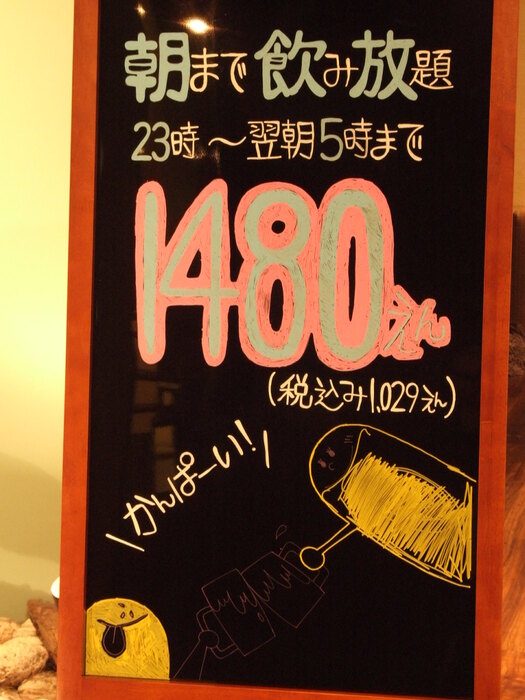 朝まで飲み放題
23時〜翌朝5時まで
1480えん
(税込み1,029えん)
かんぱーい!